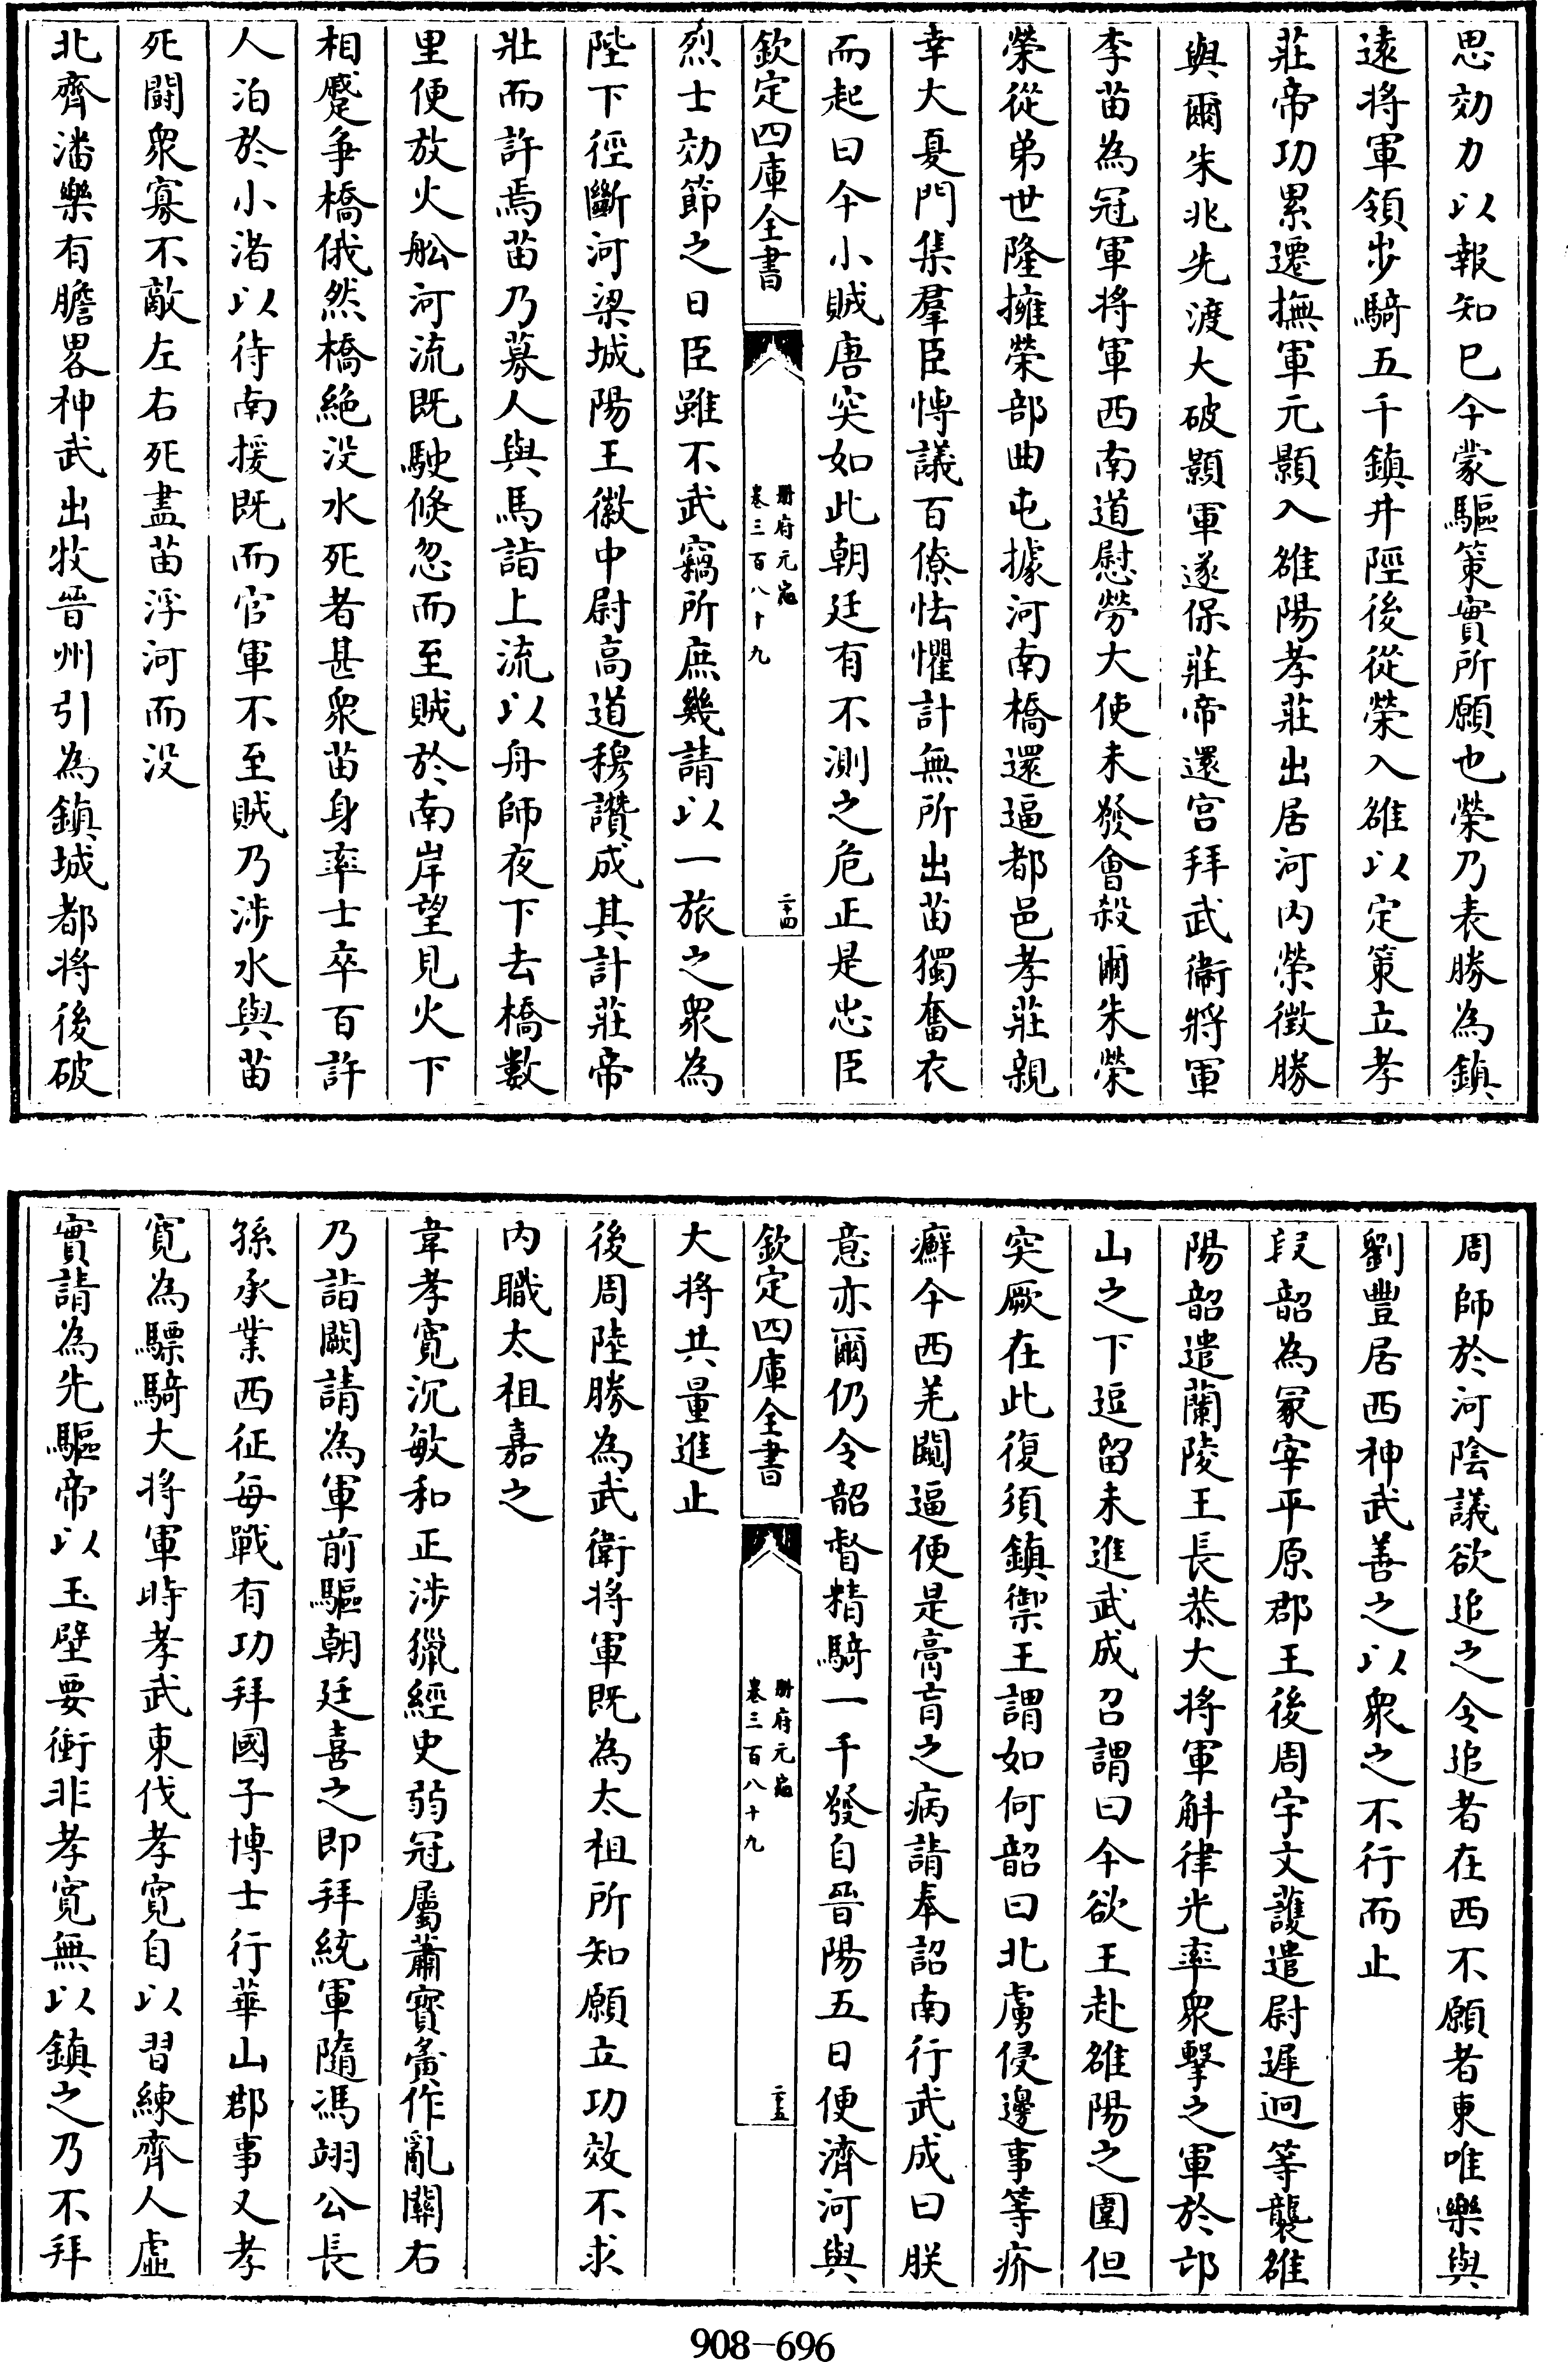 思効力以報知已今蒙驅策實所願也榮乃表勝為鎮
遠將軍領步騎五千鎮井陘後從榮入雒以定策立孝
莊帝功累遷撫軍元顥入雒陽孝莊出居河内榮徵勝
與爾朱兆先渡大破顥軍遂保莊帝還宫拜武衞將軍
李苗為冠軍將軍西南道慰勞大使未發會殺爾朱榮
榮從弟世隆擁榮部曲屯據河南橋還逼都邑孝莊親
幸大夏門集羣臣愽議百僚怯懼計無所出苗獨奮衣
而起曰今小賊唐突如此朝廷有不測之危正是忠臣
欽定四庫全書
册府元龜
卷三百八十九
二十四
烈士効節之日臣雖不武竊所庶幾請以一旅之衆為
陛下徑斷河梁城陽王徽中尉高道穆讚成其計莊帝
壯而許焉苗乃募人與馬詣上流以舟師夜下去橋數
里便放火舩河流既駛倐忽而至賊於南岸望見火下
相蹙爭橋俄然橋絶没水死者甚衆苗身率士卒百許
人泊於小渚以待南援既而官軍不至賊乃渉水與苗
死鬭衆寡不敵左右死盡苗浮河而没
北齊潘樂有膽畧神武出牧晉州引為鎮城都將後破
周師於河陰議欲追之令追者在西不願者東唯樂與
劉豐居西神武善之以衆之不行而止
段韶為冡宰平原郡王後周宇文護遣尉遲迥等襲雒
陽韶遣蘭陵王長恭大將軍斛律光率衆擊之軍於邙
山之下逗留未進武成召謂曰今欲王赴雒陽之圍但
突厥在此復須鎮禦王謂如何韶曰北虜侵邊事等疥
癬今西羌闚逼便是膏肓之病請奉詔南行武成曰朕
意亦爾仍令韶督精騎一千發自晉陽五日便濟河與
欽定四庫全書
册府元龜
卷三百八十九
二十五
大將共量進止
後周陸勝為武衛將軍既為太祖所知願立功效不求
内職太祖嘉之
韋孝寛沉敏和正渉獵經史弱冠屬蕭寳夤作亂關右
乃詣闕請為軍前驅朝廷喜之即拜統軍隨馮翊公長
孫承業西征每戰有功拜國子博士行華山郡事又孝
寛為驃騎大將軍時孝武東伐孝寛自以習練齊人虛
實請為先驅帝以玉壁要衝非孝寛無以鎮之乃不拜
908-696